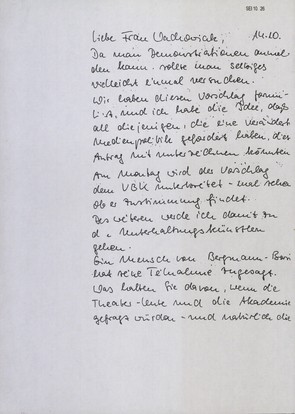 Liebe Frau 14.10.
Da man Demonstrationen anmel-
den kann, sollte man selbiges
vielleicht einmal versuchen.
Wir haben diesen Vorschlag formu-
und ich habe die Idee, daß
all diejenigen, die eine veränderte
Medienpolitik gefordert haben, d
Antrag mit unterzeichnen könnten
Am Montag wird der Vorschlag
dem VBK unterbreitet - mal sehen
ob er Zustimmung findet.
Des weiteren werde ich damit zu
d. Unterhaltungskünstlern
gehen.
Ein Mensch von Bergmann-Borsi
hat seine Teilnahme zugesagt.
Was halten Sie davon, wenn die
Theater-leute und die Akademie
gefragt würden - und natürlich die